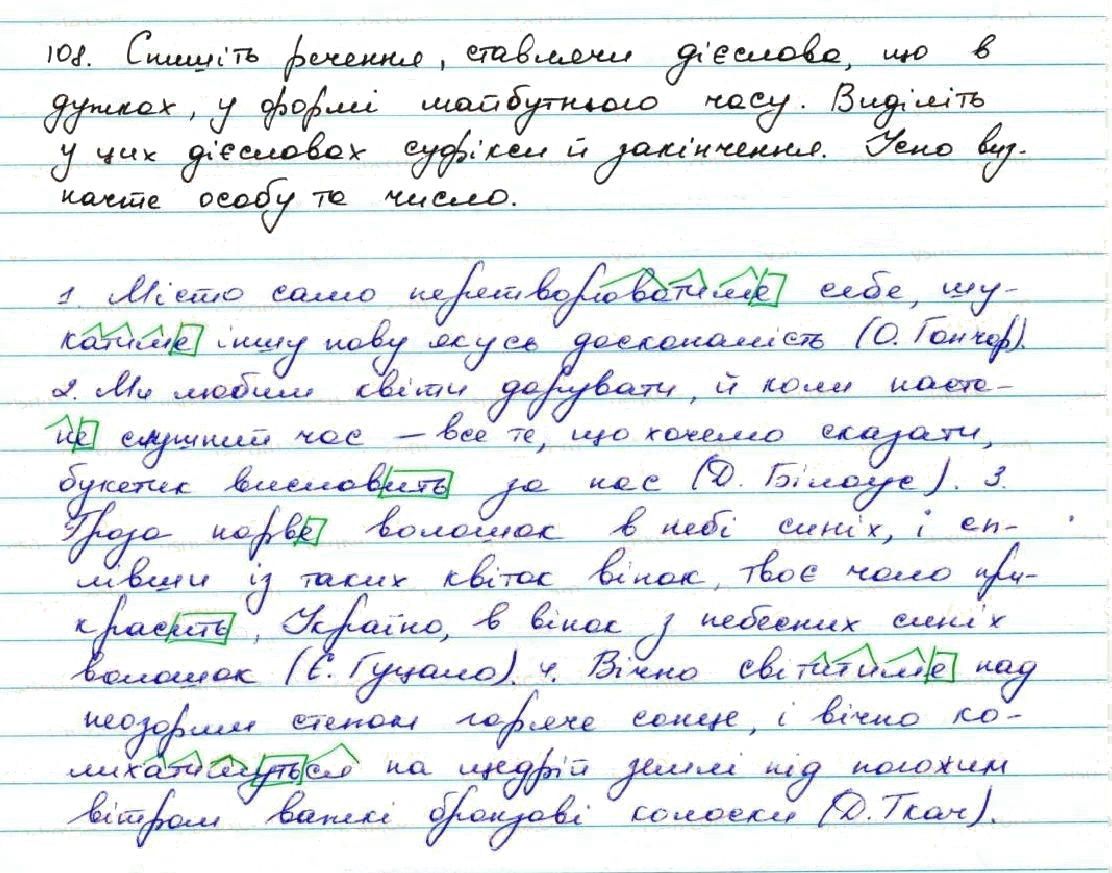 108. Спишіть речення, ставлячи дієслова, що в
дужках, у формі майбутнього часу. Виділіть
у цих дієсловах суфікси й закінчення. Усно виз-
начте особу та число.
1. Місто само перетворюватиме себе, шу-
катиме іншу нову якусь досконалість (О. Гончар).
2. Ми любим квіти дарувати, й коли наста-
не слушний час – все те, що хочемо сказати,
букетик висловить за нас (Д. Білоус). 3.
Гроза нарве волошок в небі синіх, і сп-
лівши із таких квіток вінок, твоє чоло при-
красить, Україно, в вінок з небесних синіх
волошок (Є. Гуцало). 4. Вічно світитиме над
неозорим степом гаряче сонце, і вічно ко-
лихатимуться на щедрій землі під погохим
вітром важкі бронзові колоски (Д. Ткач).